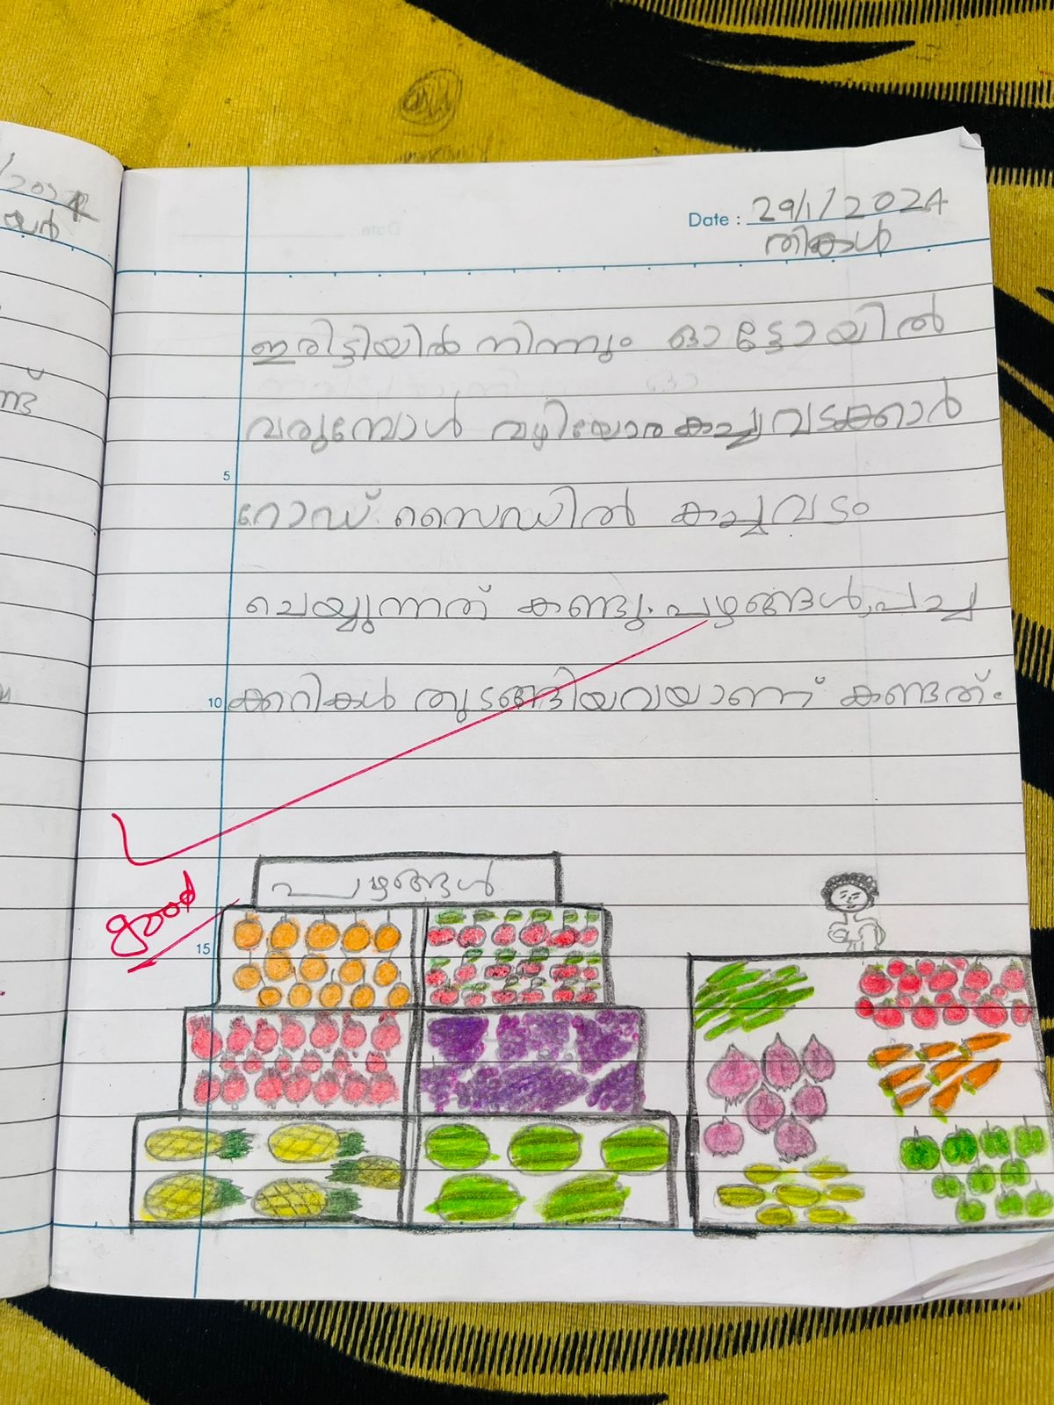 Date : 29/1/2024
തിങ്കൾ
ഇരിട്ടിയിൽ നിന്നും ഓട്ടോയിൽ
വരുമ്പോൾ വഴിയോരകച്ചവടക്കാർ
5
റോഡ് സൈഡിൽ കച്ചവടം
ചെയ്യുന്നത് കണ്ടു. പഴങ്ങൾ, പച്ച
10
ക്കറികൾ തുടങ്ങിയവയാണ് കണ്ടത്.
പഴങ്ങൾ
good
15